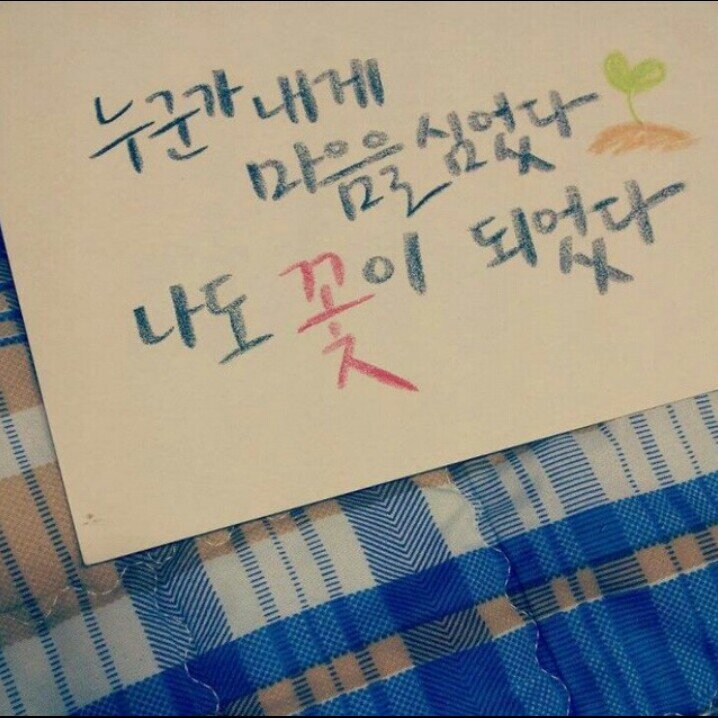 누군가 내게
마음을 심었다
나도 꽃이 되었다